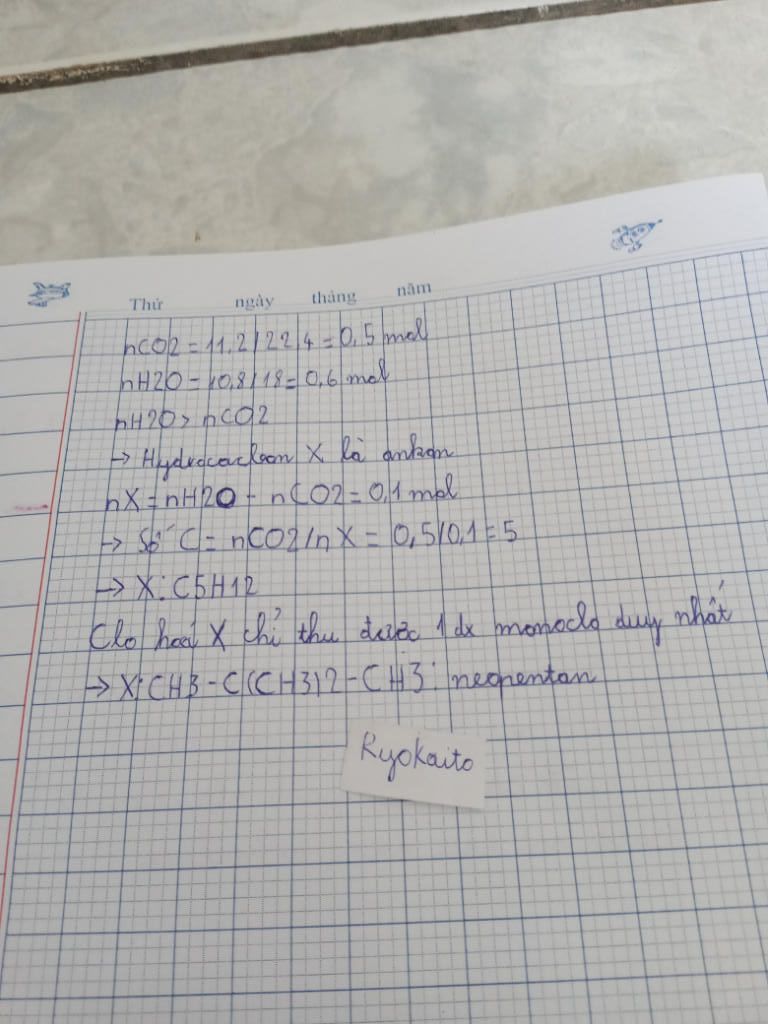 Thứ ngày tháng năm
nCO2 = 11,2/22,4 = 0,5 mol
nH2O = 10,8/18 = 0,6 mol
nH2O > nCO2
→ Hydrocacbon X là ankan
nX = nH2O - nCO2 = 0,1 mol
→ Số C = nCO2/nX = 0,5/0,1 = 5
→ X: C5H12
Clo hoá X chỉ thu được 1 dx monoclo duy nhất
→ X: CH3-C(CH3)2-CH3: neopentan
Ryokaito